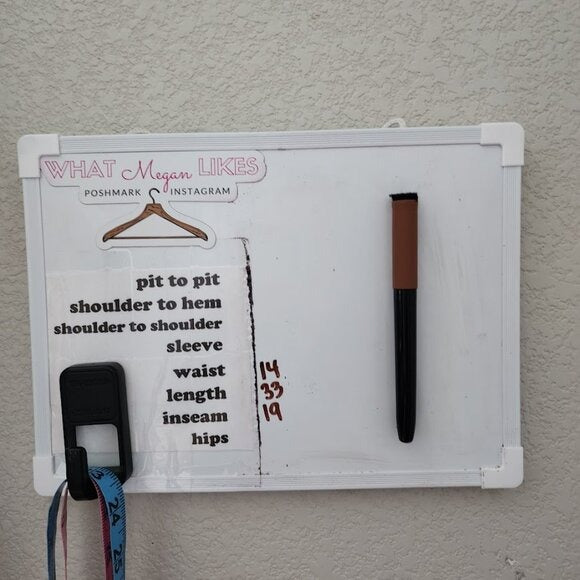 WHAT Megan LIKES
POSHMARK INSTAGRAM
pit to pit
shoulder to hem
shoulder to shoulder
sleeve
waist 14
length 33
inseam 19
hips
24
25